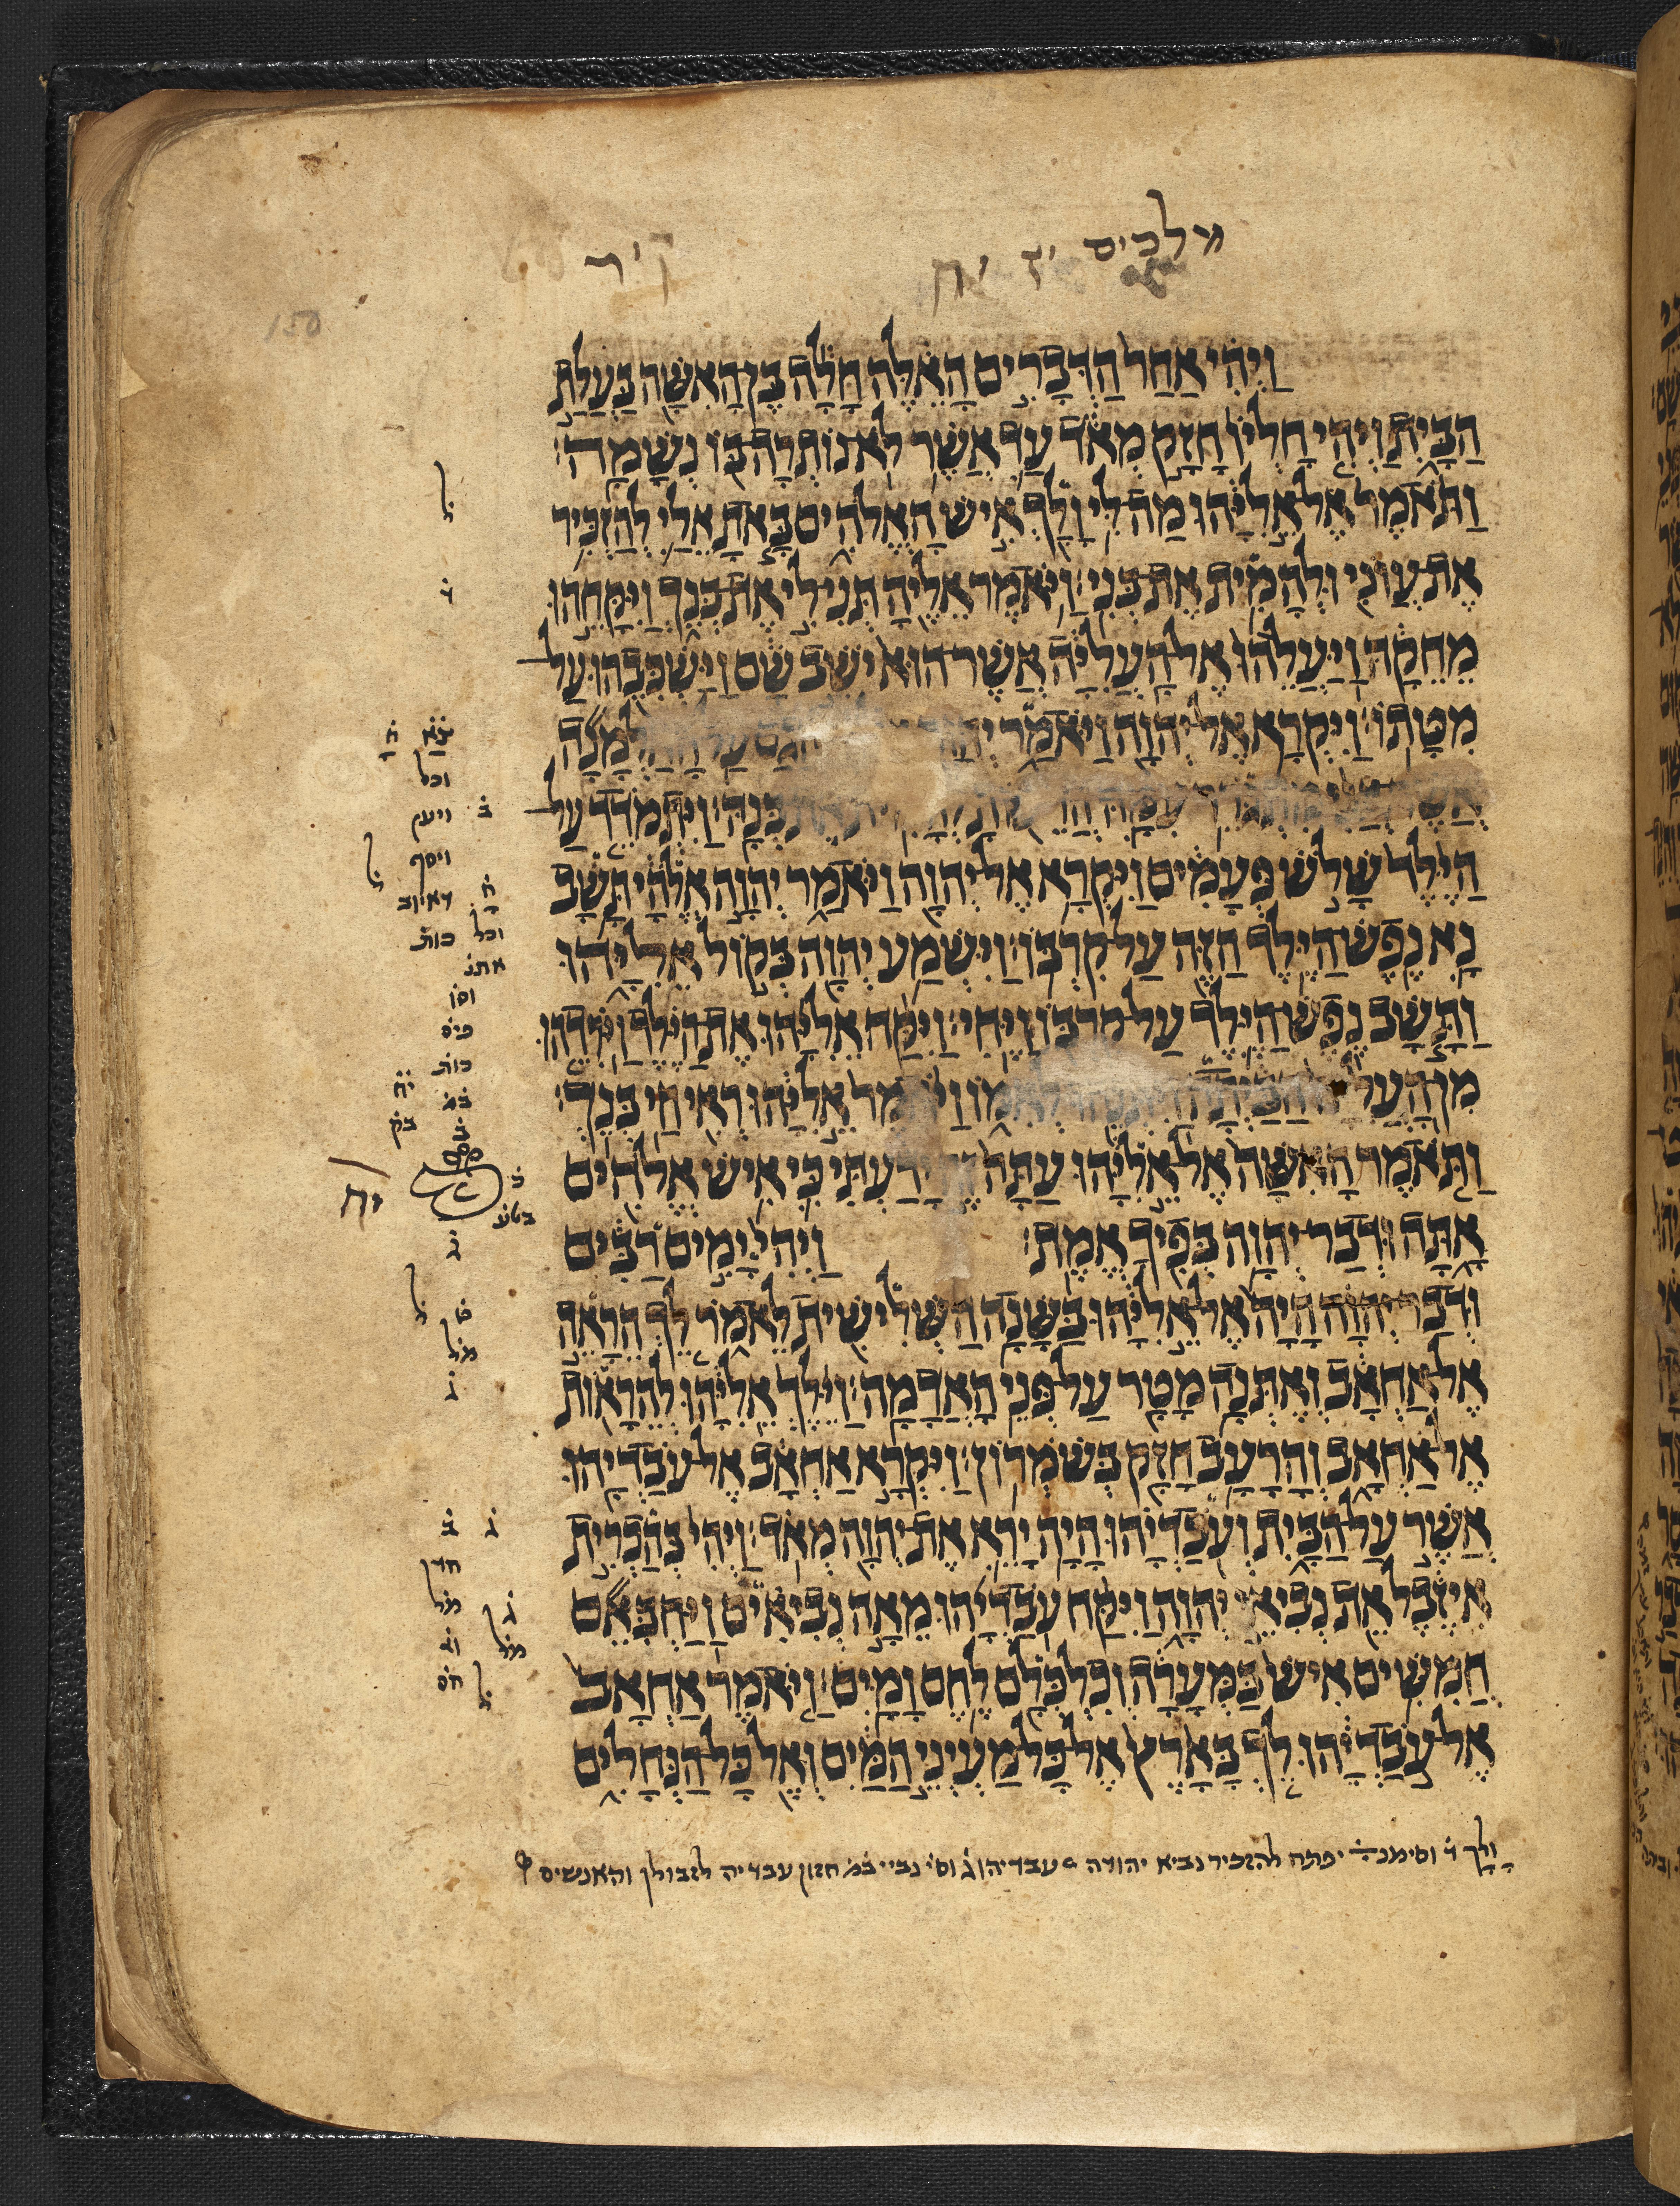 מלכים יז יח
ק״ר
150
וַיְהִי אַחַר הַדְּבָרִים הָאֵלֶּה חָלָה בֶּן הָאִשָּׁה בַּעֲלַת
הַבָּיִת וַיְהִי חָלְיוֹ חָזָק מְאֹד עַד אֲשֶׁר לֹא נוֹתְרָה בּוֹ נְשָׁמָה׃
וַתֹּאמֶר אֶל אֵלִיָּהוּ מַה לִּי וָלָךְ אִישׁ הָאֱלֹהִים בָּאתָ אֵלַי לְהַזְכִּיר
אֶת עֲוֹנִי וּלְהָמִית אֶת בְּנִי׃ וַיֹּאמֶר אֵלֶיהָ תְּנִי לִי אֶת בְּנֵךְ וַיִּקָּחֵהוּ
מֵחֵקָהּ וַיַּעֲלֵהוּ אֶל הָעֲלִיָּה אֲשֶׁר הוּא יֹשֵׁב שָׁם וַיַּשְׁכִּבֵהוּ עַל
מִטָּתוֹ׃ וַיִּקְרָא אֶל יְהוָה וַיֹּאמַר הֲגַם עַל הָאַלְמָנָה
אֲשֶׁר עִמָּהּ אֶת בְּנָהּ׃ וַיִּתְמֹדֵד עַל
הַיֶּלֶד שָׁלֹשׁ פְּעָמִים וַיִּקְרָא אֶל יְהוָה וַיֹּאמַר יְהוָה אֱלֹהָי תָּשָׁב
נָא נֶפֶשׁ הַיֶּלֶד הַזֶּה עַל קִרְבּוֹ׃ וַיִּשְׁמַע יְהוָה בְּקוֹל אֵלִיָּהוּ
וַתָּשָׁב נֶפֶשׁ הַיֶּלֶד עַל קִרְבּוֹ וַיֶּחִי׃ וַיִּקַּח אֵלִיָּהוּ אֶת הַיֶּלֶד וַיֹּרִדֵהוּ
מִן הָעֲלִיָּה הַבַּיְתָה וַיִּתְּנֵהוּ לְאִמּוֹ וַיֹּאמֶר אֵלִיָּהוּ רְאִי חַי בְּנֵךְ׃
וַתֹּאמֶר הָאִשָּׁה אֶל אֵלִיָּהוּ עַתָּה זֶה יָדַעְתִּי כִּי אִישׁ אֱלֹהִים
אָתָּה וּדְבַר יְהוָה בְּפִיךָ אֱמֶת׃ וַיְהִי יָמִים רַבִּים
וּדְבַר יְהוָה הָיָה אֶל אֵלִיָּהוּ בַּשָּׁנָה הַשְּׁלִישִׁית לֵאמֹר לֵךְ הֵרָאֵה
אֶל אַחְאָב וְאֶתְּנָה מָטָר עַל פְּנֵי הָאֲדָמָה׃ וַיֵּלֶךְ אֵלִיָּהוּ לְהֵרָאוֹת
אֶל אַחְאָב וְהָרָעָב חָזָק בְּשֹׁמְרוֹן׃ וַיִּקְרָא אַחְאָב אֶל עֹבַדְיָהוּ
אֲשֶׁר עַל הַבָּיִת וְעֹבַדְיָהוּ הָיָה יָרֵא אֶת יְהוָה מְאֹד׃ וַיְהִי בְּהַכְרִית
אִיזֶבֶל אֵת נְבִיאֵי יְהוָה וַיִּקַּח עֹבַדְיָהוּ מֵאָה נְבִיאִים וַיַּחְבִּיאֵם
חֲמִשִּׁים אִישׁ בַּמְּעָרָה וְכִלְכְּלָם לֶחֶם וָמָיִם׃ וַיֹּאמֶר אַחְאָב
אֶל עֹבַדְיָהוּ לֵךְ בָּאָרֶץ אֶל כָּל מַעְיְנֵי הַמַּיִם וְאֶל כָּל הַנְּחָלִים
ל
ד
וכל
ויעף
ב
ויסף
ל
וכל
יח
ג
ל
ג
ב
ג
ל
וָלָךְ ד וסימנ יפתח להזכיר נביא יהודה עבדיהו ג וס נביי חזון עבדיה לזבולן והאנשים